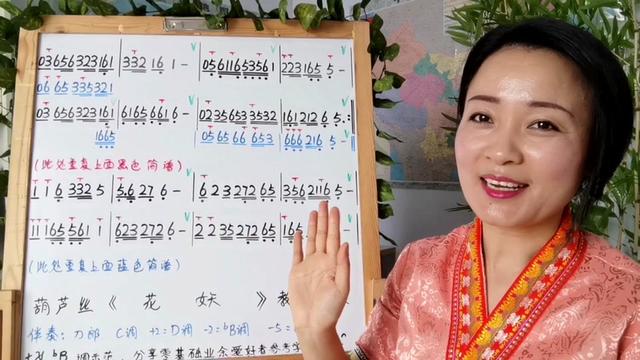 03656323161 | 332 16 1 - | 0561165 3561 | 223 165 5 -
06 65 335321
03 656 323 161 | 6165 661 6 - | 0235653532 | 161212 6 5 :
1665 05 65 66 653 | 666216 5 -
(此处重复上面黑色简谱)
1 1 6 332 5 | 5.6 27 6 - | 6 2 3 272 65 | 356 2116 5 -
11 165 561 1 | 623 272 6 - | 2 2 35 272 65 | 165
(此处重复上面蓝色简谱)
葫芦丝《 花 妖 》教
伴奏:刀郎 C调 +2=D调 -2=ᵇB调 -5=